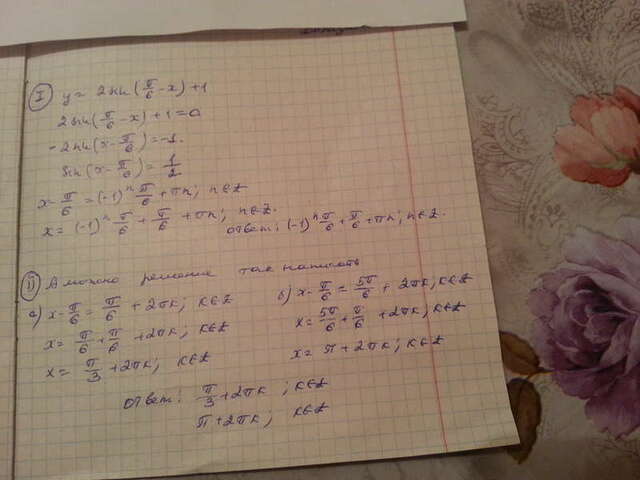 I y = 2sin(π/6 - x) + 1
2sin(π/6 - x) + 1 = 0
-2sin(x - π/6) = -1.
sin(x - π/6) = 1/2
x - π/6 = (-1)ⁿ π/6 + πn; n∈Z
x = (-1)ⁿ π/6 + π/6 + πn; n∈Z.
ответ: (-1)ⁿ π/6 + π/6 + πn; n∈Z.
А можно решение так написать
а) x - π/6 = π/6 + 2πk; k∈Z
б) x - π/6 = 5π/6 + 2πk; k∈Z
x = π/6 + π/6 + 2πk; k∈Z
x = 5π/6 + π/6 + 2πk; k∈Z
x = π/3 + 2πk; k∈Z
x = π + 2πk; k∈Z
ответ: π/3 + 2πk; k∈Z
π + 2πk; k∈Z